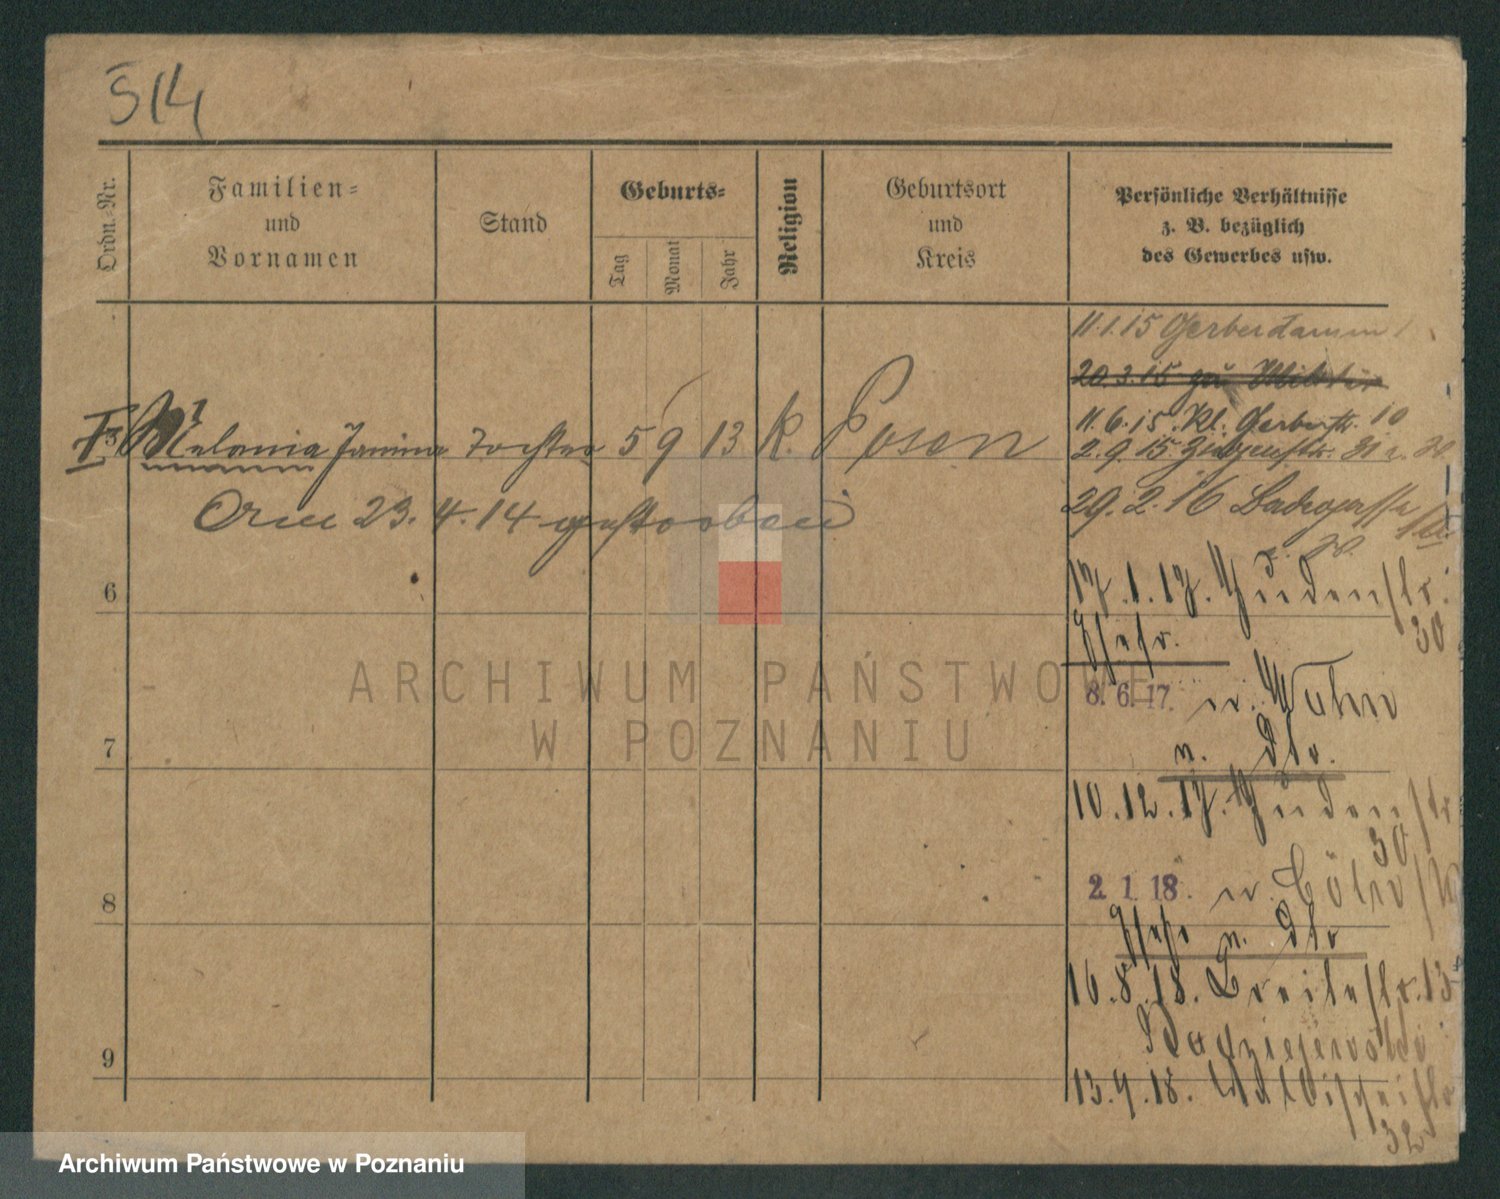 514
Ordn.-Nr.
Familien-
und
Vornamen
Stand
Geburts-
Tag
Monat
Jahr
Religion
Geburtsort
und
Kreis
Persönliche Verhältnisse
z. B. bezüglich
des Gewerbes usw.
11.1.15 Gerberdamm 1
20.3.15 zum Militär
11.6.15. Kl. Gerberstr. 10
Melania Janina Tochter 5 9 13 k. Posen
2.9.15 Ziegenstr.
Am 23.4.14 gestorben
29.2.16 Badegasse
6
17.1.17. Judenstr.
30
Ehefr.
8. 6. 17. n. Wahn
7
n.
10.12.17. Judenstr
30
2. 1. 18. n. Cöln
8
Ehefr n.
16.8.18. Breitestr. 13
Badziejewski
9
13.9.18.
32
ARCHIWUM PAŃSTWOWE
W POZNANIU
Archiwum Państwowe w Poznaniu